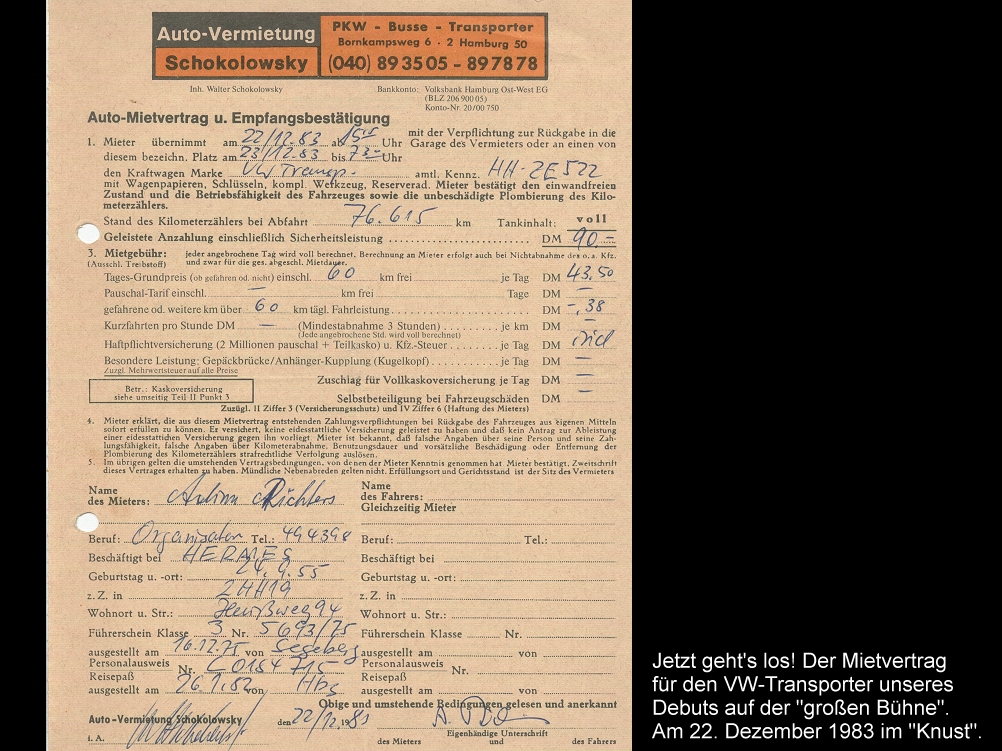 Auto-Vermietung
Schokolowsky
PKW - Busse - Transporter
Bornkampsweg 6 · 2 Hamburg 50
(040) 89 35 05 - 89 78 78
Inh. Walter Schokolowsky
Bankkonto: Volksbank Hamburg Ost-West EG
(BLZ 206 900 05)
Konto-Nr. 20/00 750
Auto-Mietvertrag u. Empfangsbestätigung
1. Mieter übernimmt am 22/12.83 ab 15 Uhr mit der Verpflichtung zur Rückgabe in die
diesem bezeichn. Platz am 23/12.83 bis 7 Uhr Garage des Vermieters oder an einen von
den Kraftwagen Marke VW Transp. amtl. Kennz. HH-ZE522
mit Wagenpapieren, Schlüsseln, kompl. Wefkzeug, Reserverad. Mieter bestätigt den einwandfreien
Zustand und die Betriebsfähigkeit des Fahrzeuges sowie die unbeschädigte Plombierung des Kilo-
meterzählers.
Stand des Kilometerzählers bei Abfahrt 76.615 km Tankinhalt: voll
Geleistete Anzahlung einschließlich Sicherheitsleistung DM 90.-
3. Mietgebühr: jeder angebrochene Tag wird voll berechnet. Berechnung an Mieter erfolgt auch bei Nichtabnahme des o. a. Kfz.
(Ausschl. Treibstoff) und zwar für die ges. abgeschl. Mietdauer.
Tages-Grundpreis (ob gefahren od. nicht) einschl. 60 km frei je Tag DM 43,50
Pauschal-Tarif einschl. — km frei Tage DM —
gefahrene od. weitere km über 60 km tägl. Fahrleistung DM -,38
Kurzfahrten pro Stunde DM — (Mindestabnahme 3 Stunden) je km DM —
(Jede angebrochene Std. wird voll berechnet)
Haftpflichtversicherung (2 Millionen pauschal + Teilkasko) u. Kfz.-Steuer je Tag DM
Besondere Leistung: Gepäckbrücke/Anhänger-Kupplung (Kugelkopf) je Tag DM —
Zuzgl. Mehrwertsteuer auf alle Preise
Zuschlag für Vollkaskoversicherung je Tag DM —
Betr.: Kaskoversicherung
siehe umseitig Teil II Punkt 3
Selbstbeteiligung bei Fahrzeugschäden DM —
Zuzügl. II Ziffer 3 (Versicherungsschutz) und IV Ziffer 6 (Haftung des Mieters)
4. Mieter erklärt, die aus diesem Mietvertrag entstehenden Zahlungsverpflichtungen bei Rückgabe des Fahrzeuges aus eigenen Mitteln
sofort erfüllen zu können. Er versichert, keine eidesstattliche Versicherung geleistet zu haben und daß kein Antrag zur Ableistung
einer eidesstattlichen Versicherung gegen ihn vorliegt. Mieter ist bekannt, daß falsche Angaben über seine Person und seine Zah-
lungsfähigkeit, falsche Angaben über Kilometerabnahme, Benutzungsdauer und vorsätzliche Beschädigung oder Entfernung der
Plombierung des Kilometerzählers strafrechtliche Verfolgung auslösen.
5. Im übrigen gelten die umstehenden Vertragsbedingungen, von denen der Mieter Kenntnis genommen hat. Mieter bestätigt, Zweitschrift
dieses Vertrages erhalten zu haben. Mündliche Nebenabreden gelten nicht. Erfüllungsort und Gerichtsstand ist der Sitz des Vermieters
Name
des Mieters: Richters
Name
des Fahrers:
Gleichzeitig Mieter
Beruf: Organisator Tel.: 494398
Beruf: Tel.:
Beschäftigt bei HERMES
Beschäftigt bei
Geburtstag u. -ort: 24.9.55
Geburtstag u. -ort:
z. Z. in 2HH19
z. Z. in
Wohnort u. Str.: Heußweg 94
Wohnort u. Str.:
Führerschein Klasse 3 Nr. 5693/75
Führerschein Klasse Nr.
ausgestellt am 16.12.75 von Segeberg
ausgestellt am von
Personalausweis
Reisepaß Nr. C0184715
Personalausweis
Reisepaß Nr.
ausgestellt am 26.1.82 von Hbg
ausgestellt am von
Obige und umstehende Bedingungen gelesen und anerkannt
Auto-Vermietung Schokolowsky den 22/12.1983
i. A.
des Mieters Eigenhändige Unterschrift und des Fahrers
Jetzt geht's los! Der Mietvertrag
für den VW-Transporter unseres
Debuts auf der "großen Bühne".
Am 22. Dezember 1983 im "Knust".